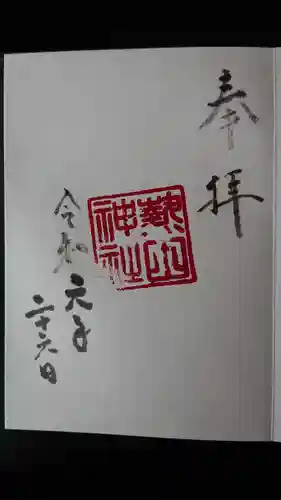 奉拝
熱田
神社
令和元年
二十六日